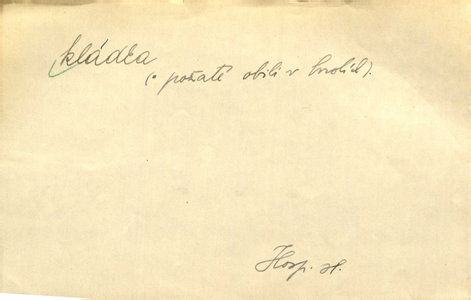 kládka
(o požaté obilí v hrstích).
Hosp. st.